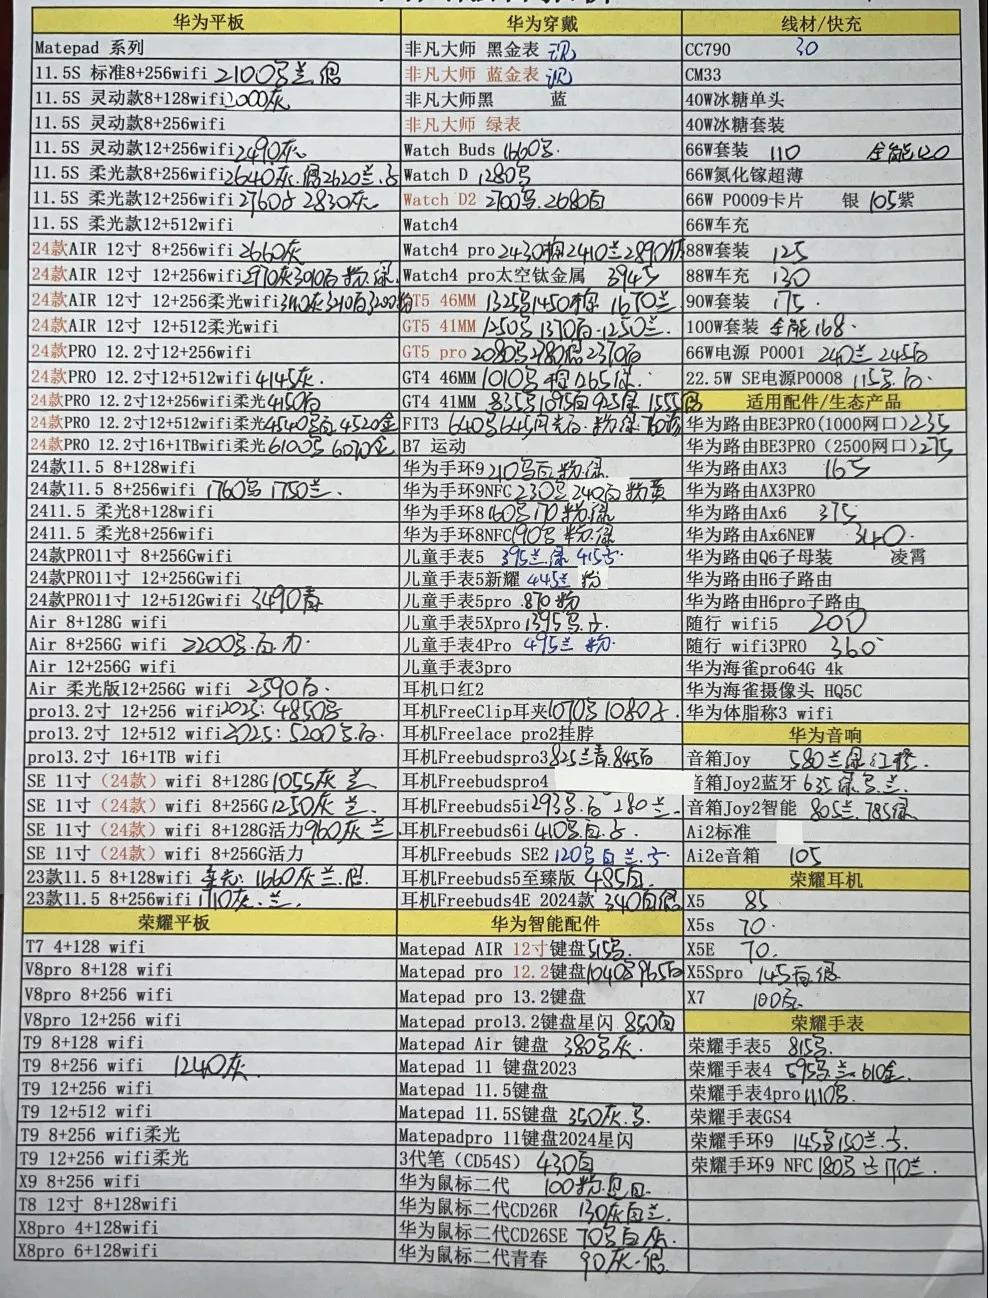 华为平板
Matepad 系列
11.5S 标准8+256wifi 2100
11.5S 灵动款8+128wifi 2000灰
11.5S 灵动款8+256wifi
11.5S 灵动款12+256wifi 2490灰
11.5S 柔光款8+256wifi 2640灰.
11.5S 柔光款12+256wifi 2830灰
11.5S 柔光款12+512wifi
24款AIR 12寸 8+256wifi 2660灰
24款AIR 12寸 12+256wifi
24款AIR 12寸 12+256柔光wifi
24款AIR 12寸 12+512柔光wifi
24款PRO 12.2寸12+256wifi
24款PRO 12.2寸12+512wifi 4145灰.
24款PRO 12.2寸12+256wifi柔光 4150白
24款PRO 12.2寸12+512wifi柔光 4520金
24款PRO 12.2寸16+1TBwifi柔光
24款11.5 8+128wifi
24款11.5 8+256wifi 1760 1750兰.
2411.5 柔光8+128wifi
2411.5 柔光8+256wifi
24款PRO11寸 8+256Gwifi
24款PRO11寸 12+256Gwifi
24款PRO11寸 12+512Gwifi 3490青
Air 8+128G wifi
Air 8+256G wifi 2200
Air 12+256G wifi
Air 柔光版12+256G wifi 2590白.
pro13.2寸 12+256 wifi 2025: 4850
pro13.2寸 12+512 wifi 2025: 5200
pro13.2寸 16+1TB wifi
SE 11寸（24款）wifi 8+128G 1055灰 兰
SE 11寸（24款）wifi 8+256G 1250灰 兰.
SE 11寸（24款）wifi 8+128G活力 960灰 兰
SE 11寸（24款）wifi 8+256G活力
23款11.5 8+128wifi 柔光: 1660灰 兰.
23款11.5 8+256wifi 1710灰.兰.
荣耀平板
T7 4+128 wifi
V8pro 8+128 wifi
V8pro 8+256 wifi
V8pro 12+256 wifi
T9 8+128 wifi
T9 8+256 wifi 1240灰.
T9 12+256 wifi
T9 12+512 wifi
T9 8+256 wifi柔光
T9 12+256 wifi柔光
X9 8+256 wifi
T8 12寸 8+128wifi
X8pro 4+128wifi
X8pro 6+128wifi
华为穿戴
非凡大师 黑金表 议
非凡大师 蓝金表 议
非凡大师黑 蓝
非凡大师 绿表
Watch Buds 1660
Watch D 1280
Watch D2 2700 2680白
Watch4
Watch4 pro 2430棕2410兰2890钛
Watch4 pro太空钛金属 3945
GT5 46MM 1325 1450棕 1670兰
GT5 41MM 1250 1370白.1250兰.
GT5 pro 2080 2370白
GT4 46MM 1010
GT4 41MM 835 1095白925绿 1555
FIT3 640
B7 运动
华为手环9 210
华为手环9NFC 230 240白 粉黄
华为手环8 160 170 粉绿
华为手环8NFC 190 粉绿
儿童手表5 395兰.绿 415
儿童手表5新耀 445兰 粉
儿童手表5pro 870 粉
儿童手表5Xpro 1395
儿童手表4Pro 495兰 粉.
儿童手表3pro
耳机口红2
耳机FreeClip耳夹 1070 1080
耳机Freelace pro2挂脖
耳机Freebudspro3 825兰青.845白
耳机Freebudspro4
耳机Freebuds5i 293 280兰.
耳机Freebuds6i 410
耳机Freebuds SE2 120
耳机Freebuds5至臻版 485白.
耳机Freebuds4E 2024款 340
华为智能配件
Matepad AIR 12寸键盘 515
Matepad pro 12.2键盘 1040 965白
Matepad pro 13.2键盘
Matepad pro13.2键盘星闪 850白
Matepad Air 键盘 380
Matepad 11 键盘2023
Matepad 11.5键盘
Matepad 11.5S键盘 350灰
Matepadpro 11键盘2024星闪
3代笔（CD54S） 430白
华为鼠标二代 100粉
华为鼠标二代CD26R 130灰白兰.
华为鼠标二代CD26SE 70
华为鼠标二代青春 90灰.
线材/快充
CC790 30
CM33
40W冰糖单头
40W冰糖套装
66W套装 110 全能120
66W氮化镓超薄
66W P0009卡片 银 105紫
66W车充
88W套装 125
88W车充 130
90W套装 175.
100W套装 全能168.
66W电源 P0001 240兰 245白
22.5W SE电源P0008 115
适用配件/生态产品
华为路由BE3PRO(1000网口) 235
华为路由BE3PRO (2500网口) 275
华为路由AX3 165
华为路由AX3PRO
华为路由Ax6 375
华为路由Ax6NEW 340.
华为路由Q6子母装 凌霄
华为路由H6子路由
华为路由H6pro子路由
随行 wifi5 200
随行 wifi3PRO 360
华为海雀pro64G 4k
华为海雀摄像头 HQ5C
华为体脂称3 wifi
华为音响
音箱Joy 580兰绿 红橙.
音箱Joy2蓝牙 635
音箱Joy2智能 805兰.785绿
Ai2标准
Ai2e音箱 105
荣耀耳机
X5 85
X5s 70.
X5E 70.
X5Spro 145
X7 100
荣耀手表
荣耀手表5 815
荣耀手表4 595 610金.
荣耀手表4pro 1110
荣耀手表GS4
荣耀手环9 145 150兰.
荣耀手环9 NFC 180 170兰.